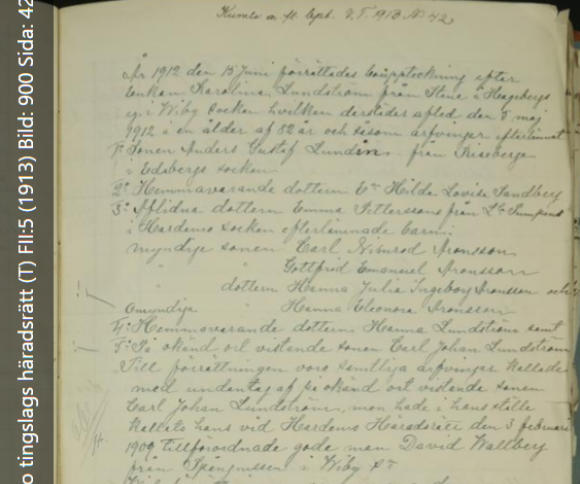 o tingslags häradsrätt (T) FII:5 (1913) Bild: 900 Sida: 42
Kumla m. fl. V. T. 1913 № 42
År 1912 den 15 Juni förrättades bouppteckning efter
Enkan Karolina Lundström från Stene i Hageberga
i Wiby socken hvilken derstädes afled den 5 maj
1912 i en ålder af 82 år och såsom arfvingar efterlämnat
1º Sonen Anders Gustaf Lundin från Riseberga
i Edsbergs socken
2º Hemmavarande dottern Hilda Lovisa Sandberg
3º Aflidna dottern Emma Petterssons från
i Hardemo socken efterlämnade barn:
myndige sonen Carl Nimrod Aronsson
" " Gottfrid Emanuel Aronsson
" dottern Hanna Julia Ingeborg Aronsson och
Omyndiga " Hanna Eleonora Aronsson
4º Hemmavarande dottern Hanna Lundström samt
5º På okänd ort vistande sonen Carl Johan Lundström
Till förrättningen voro samtliga arfvingar kallade
med undantag af på okänd ort vistande sonen
Carl Johan Lundström, men hade i hans ställe
kallats hans vid Hardemo Häradsrätt den 3 februari
1909 tillförordnade gode man David Wallberg
från i Wiby Sn